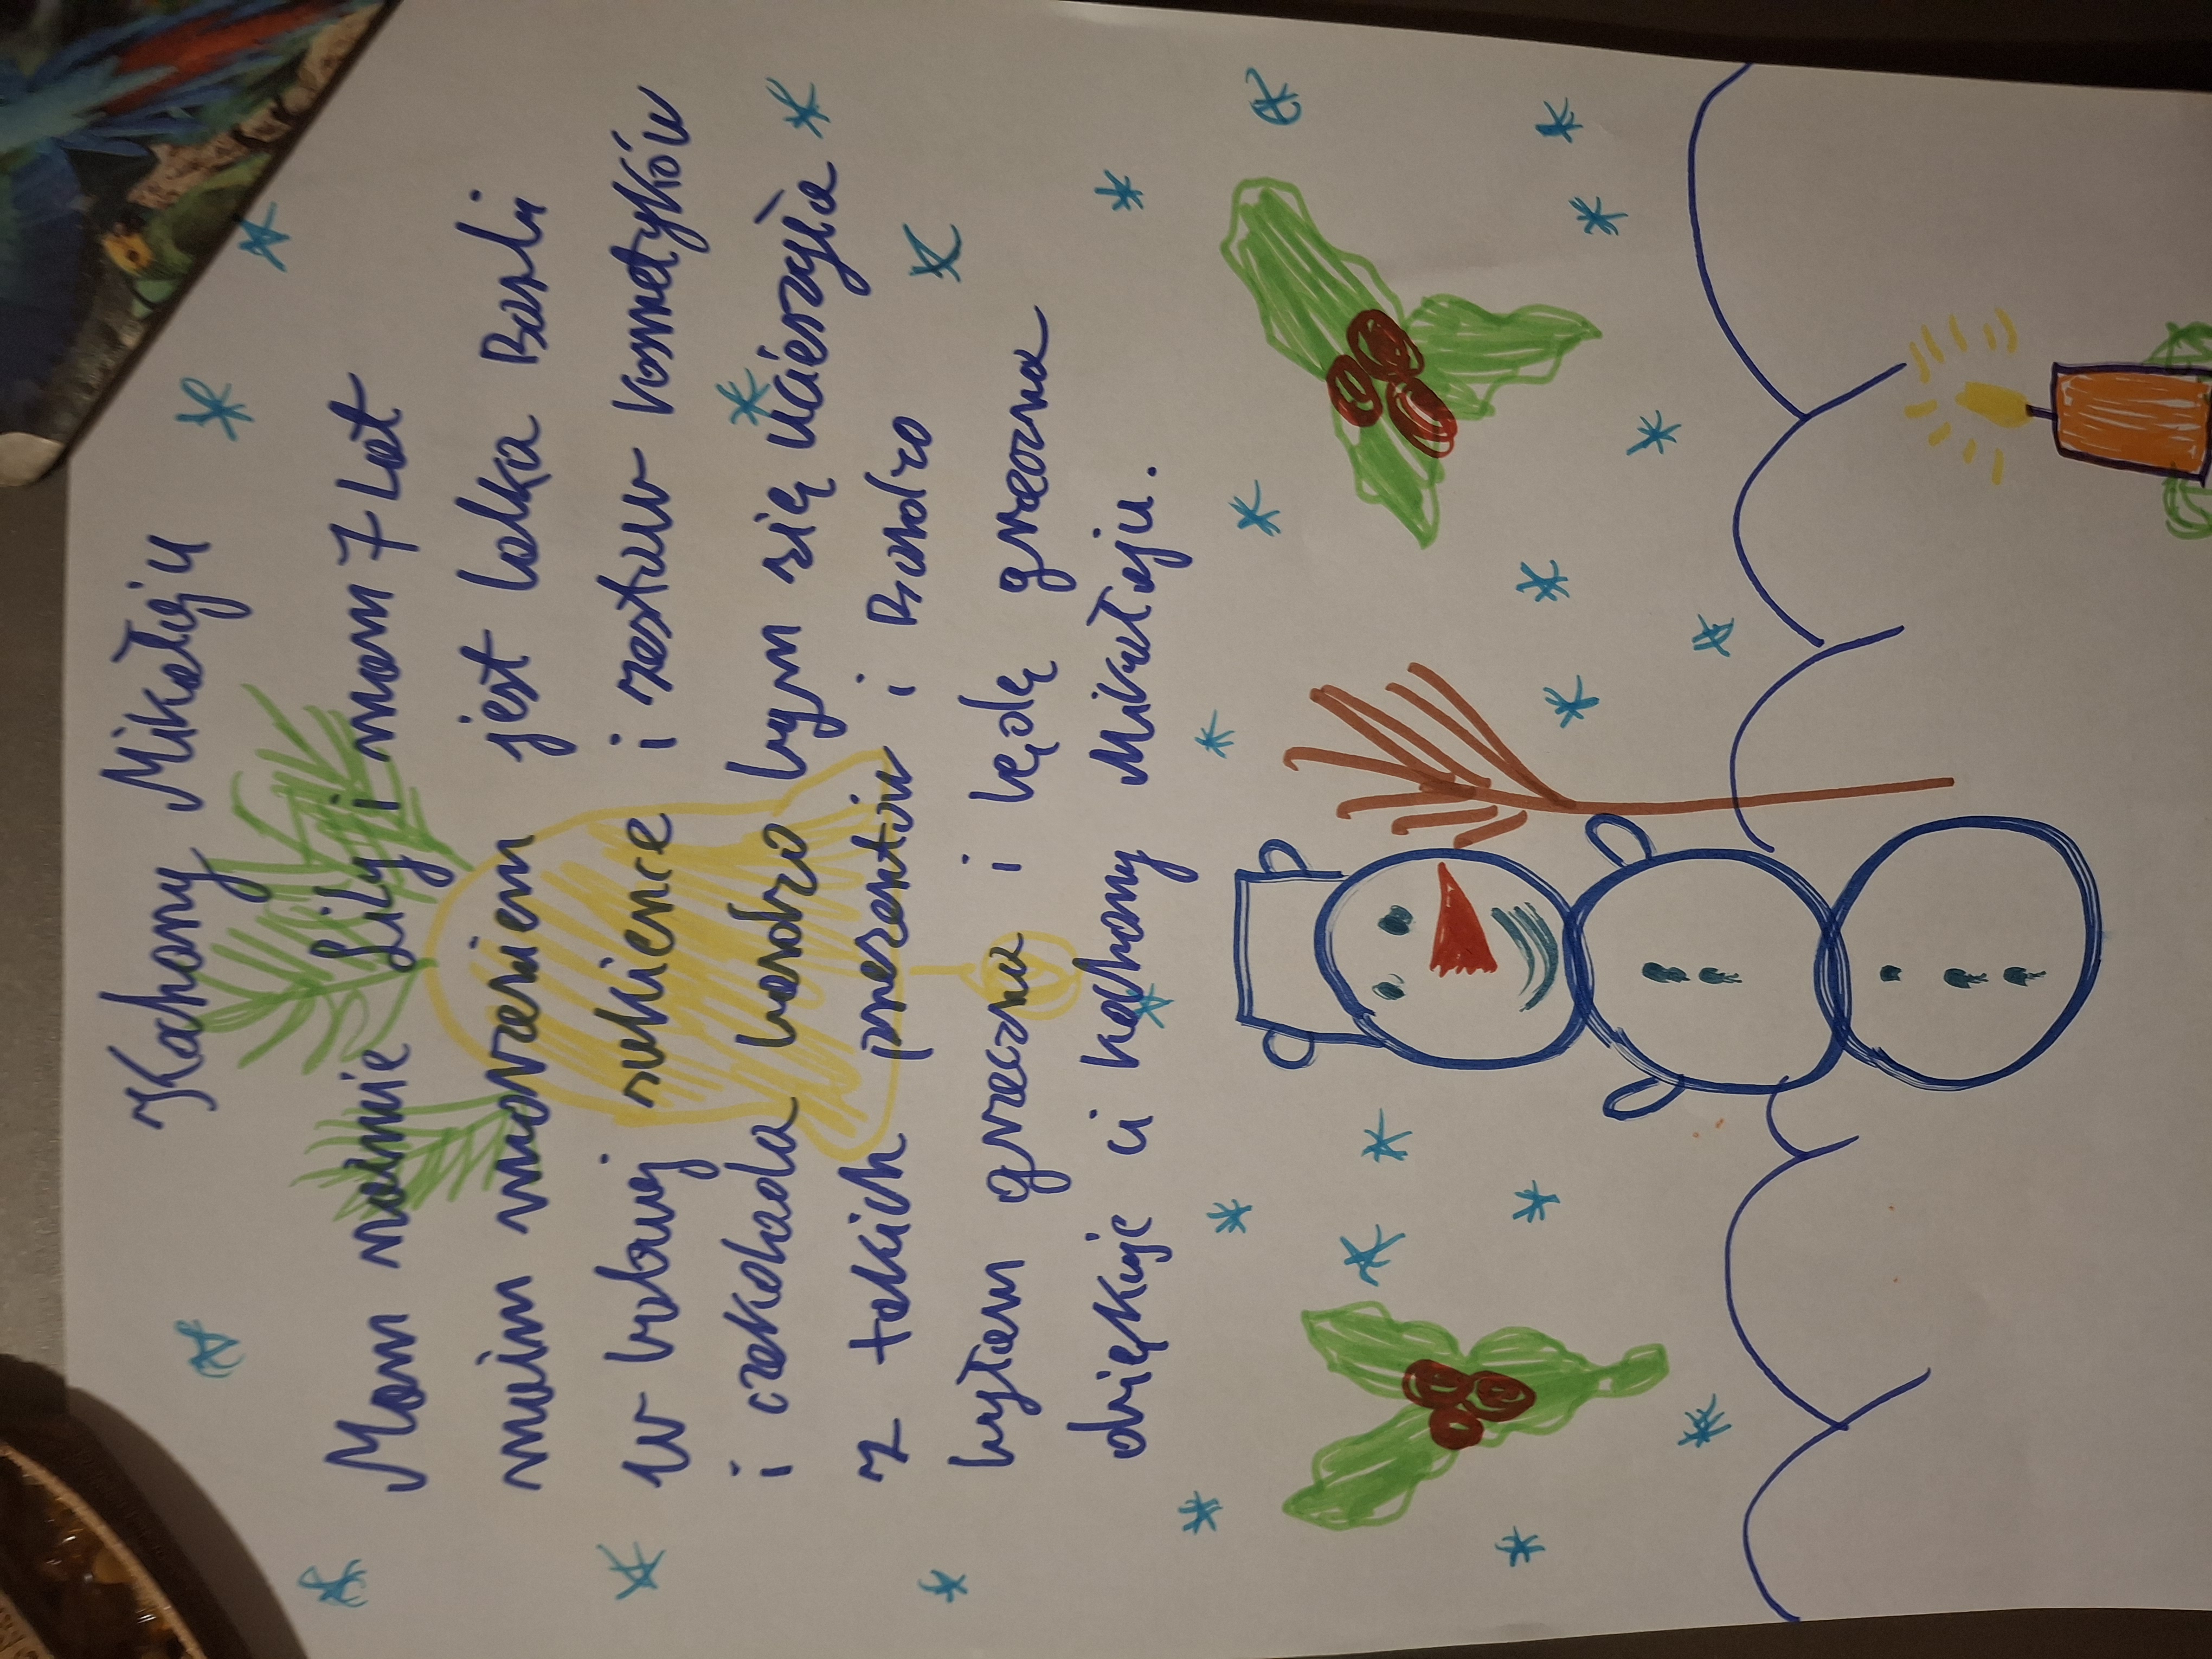 Kochany Mikołaju
Mam naimie Lily i mam 7 Lat
muim marzeniem jest lalka Barbi
w balowej sukience i zestaw kosmetyków
i czekolada bardzo bym się ucieszyła
z takich prezentów i Bardzo
byłam grzeczna i będę grzeczna
dziękuje ci kochany Mikołaju.